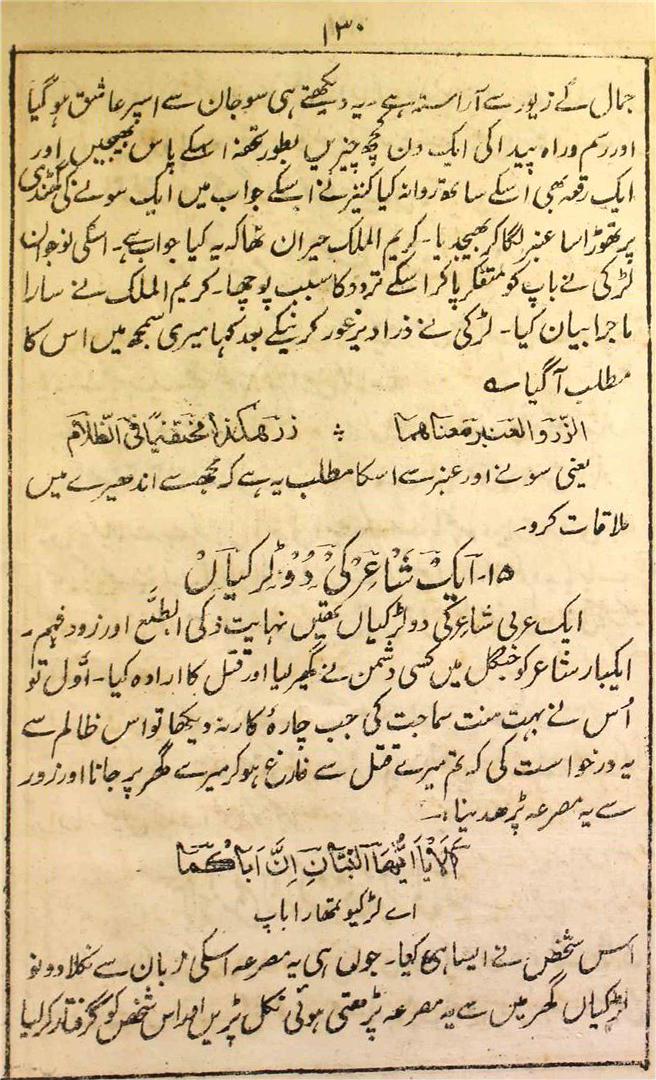 ۱۳۰
جمال کے زیور سے آراستہ ہے ۔ یہ دیکھتے ہی سو جان سے اسپر عاشق ہو گیا
اور رسم و راہ پیدا کی ایک دن کچھ چیزیں بطور تحفہ اسکے پاس بھیجیں اور
ایک رقعہ بھی اسکے ساتھ روانہ کیا کنیز نے اسکے جواب میں ایک سونے کی گھنڈی
پر تھوڑا سا عنبر لگا کر بھیجدیا ۔ کریم الملک حیران تھا کہ یہ کیا جواب ہے ۔ اسکی نوجوان
لڑکی نے باپ کو متفکر پا کر اسکے تردد کا سبب پوچھا ۔ کریم الملک نے سارا
ماجرا بیان کیا ۔ لڑکی نے ذرا دیر غور کرنیکے بعد کہا میری سمجھ میں اس کا
مطلب آگیا ؎
الزر والعنبر معناهما ؞ زر هكذا مختفيًا في الظلام
یعنی سونے اور عنبر سے اسکا مطلب یہ ہے کہ مجھسے اندھیرے میں
ملاقات کرو ۔
۱۵۔ ایک شاعر کی دو لڑکیاں
ایک عربی شاعر کی دو لڑکیاں تھیں نہایت ذکی الطبع اور زود فہم ۔
ایکبار شاعر کو جنگل میں کسی دشمن نے گھیر لیا اور قتل کا ارادہ کیا ۔ اول تو
اُس نے بہت منت سماجت کی جب چارۂ کار نہ دیکھا تو اس ظالم سے
یہ درخواست کی کہ تم میرے قتل سے فارغ ہو کر میرے گھر پر جانا اور زور
سے یہ مصرعہ پڑھ دینا :۔
أَلَا يَا أَيُّهَا الْبِنْتَانِ إِنَّ أَبَاكُمَا
اے لڑکیو تمھارا باپ
اس شخص نے ایسا ہی کیا ۔ جوں ہی یہ مصرعہ اسکی زبان سے نکلا دونو
لڑکیاں گھر میں سے یہ مصرعہ پڑھتی ہوئی نکل پڑیں اور اس شخص کو گرفتار کر لیا